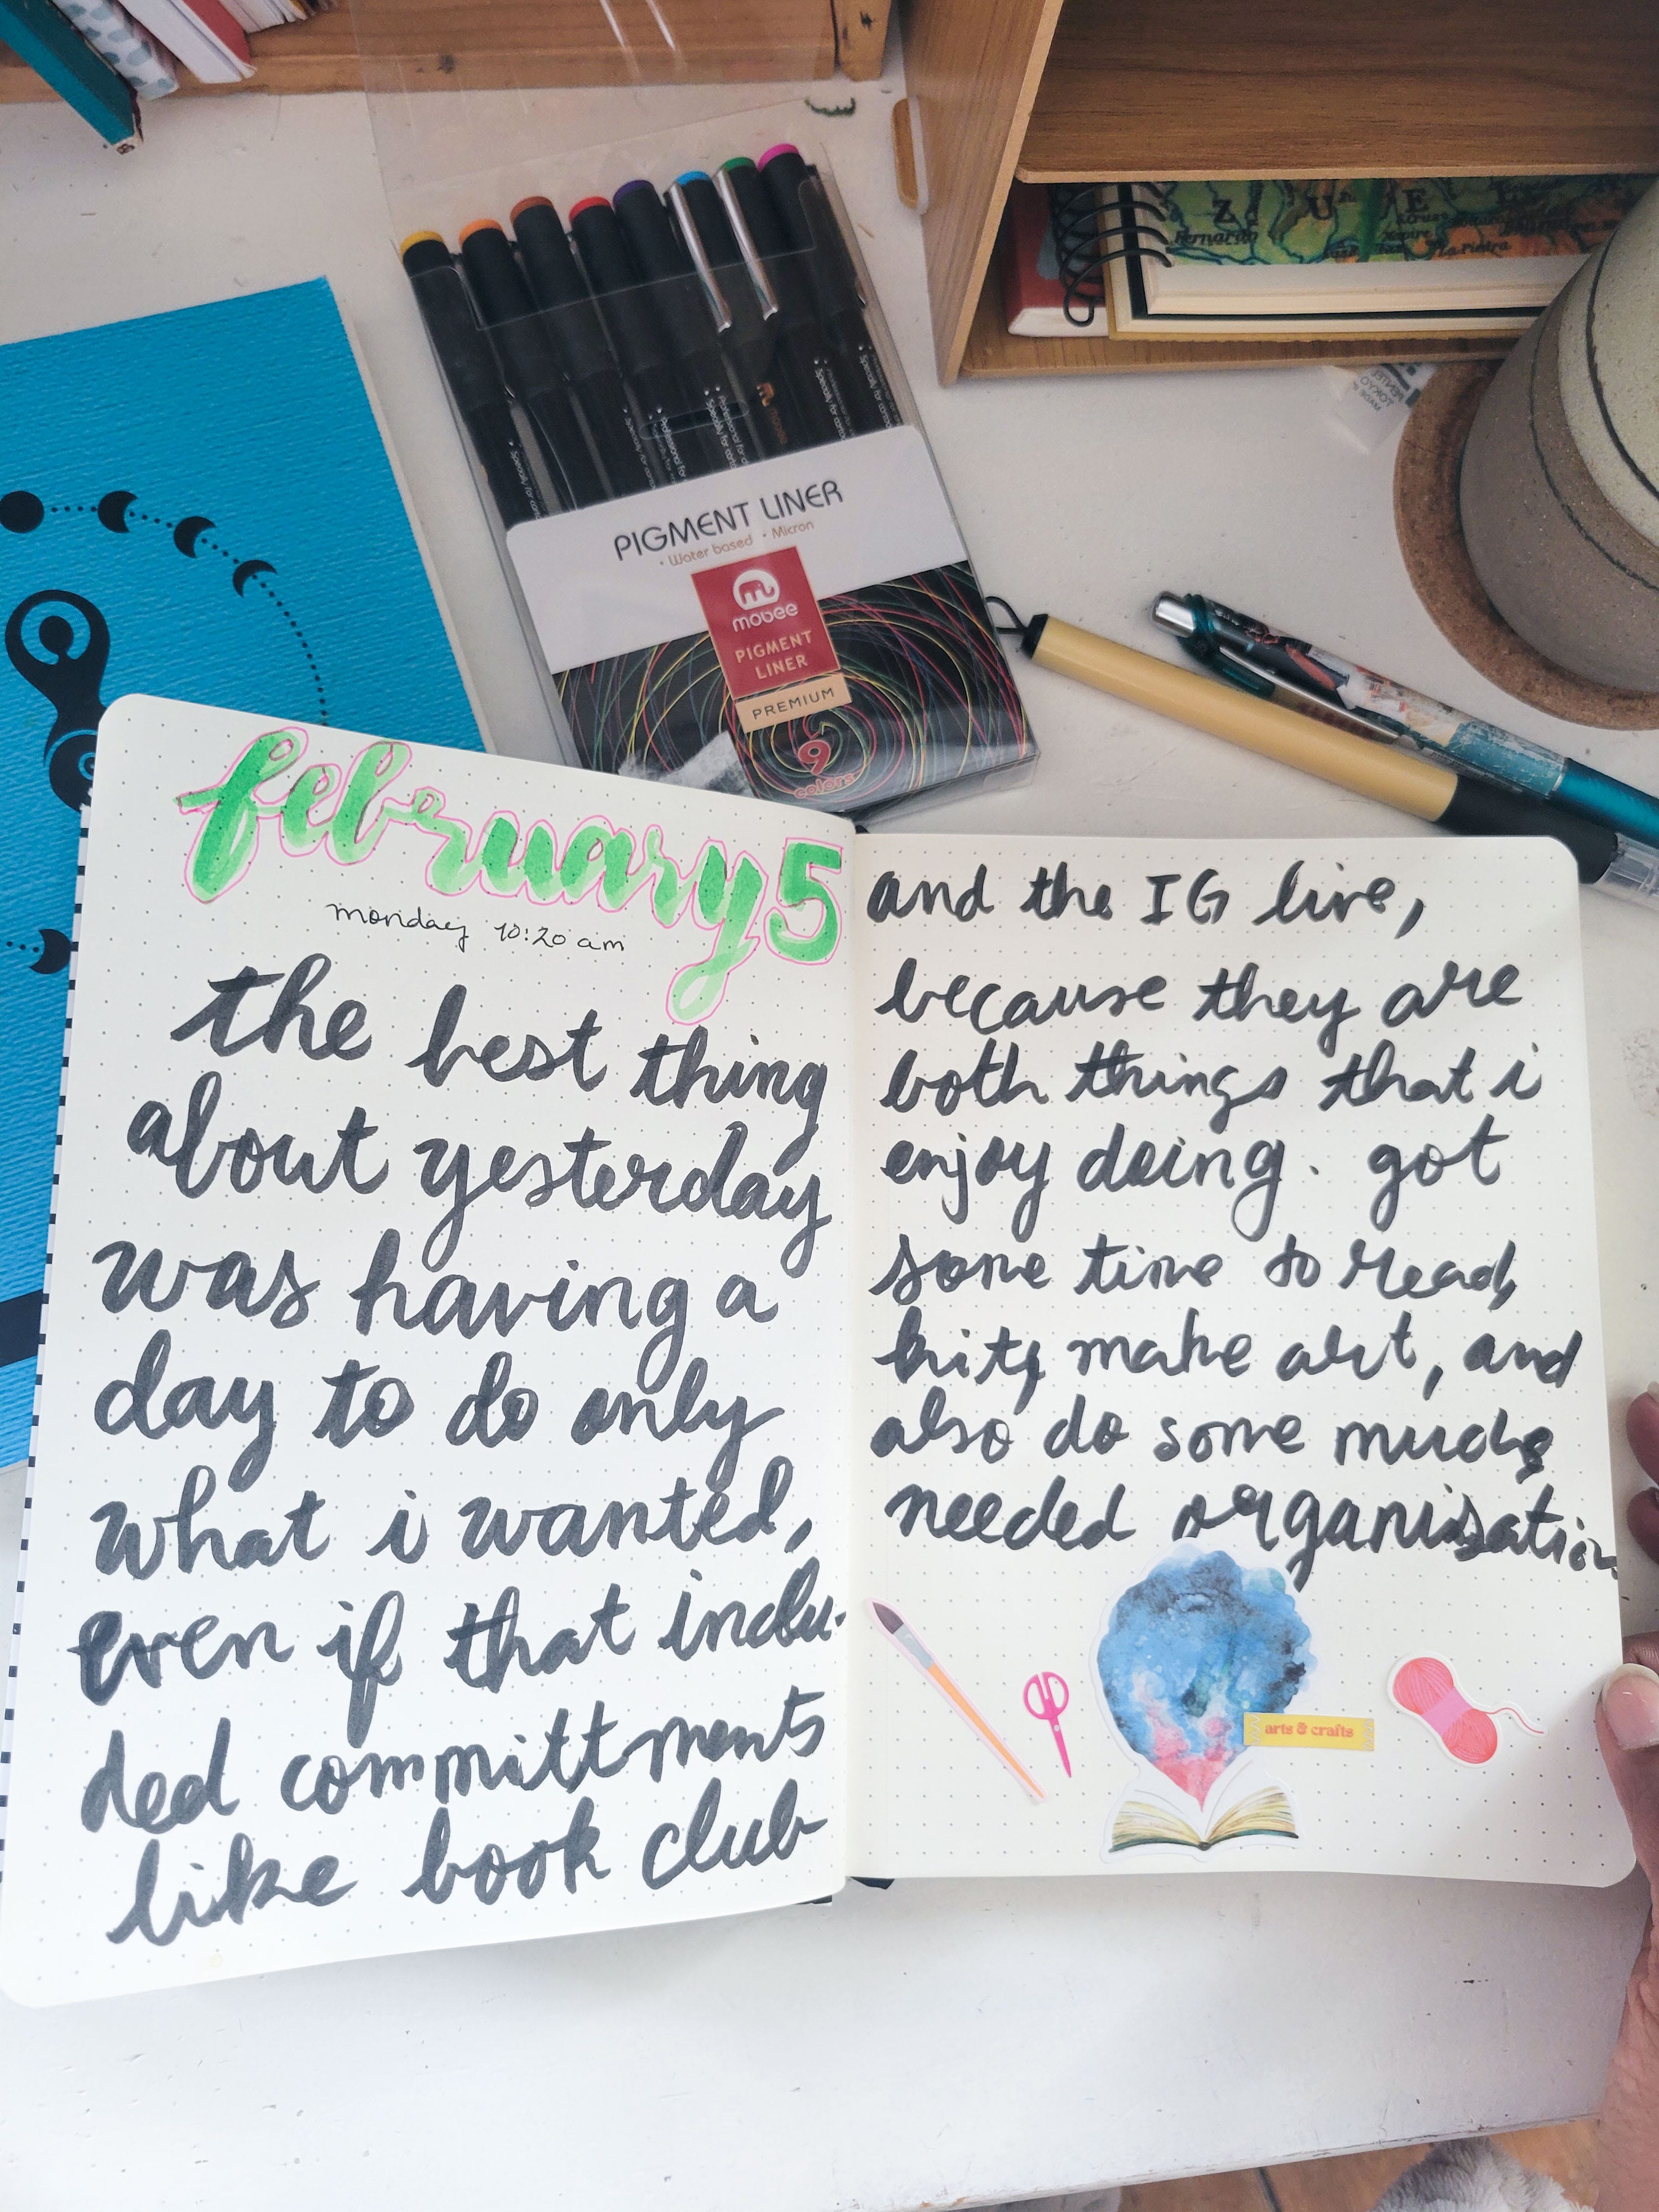 Z U E
Fernando
La Piedra
PENTEL
TOKYO
MADE
mobee
PIGMENT LINER
• Water based • Micron
mobee
PIGMENT
LINER
PREMIUM
9
colors
february 5
monday 10:20 am
the best thing
about yesterday
was having a
day to do only
what i wanted,
even if that inclu-
ded committments
like book club
and the IG live,
because they are
both things that i
enjoy doing. got
some time to read,
knit, make art, and
also do some much
needed organisation
arts & crafts